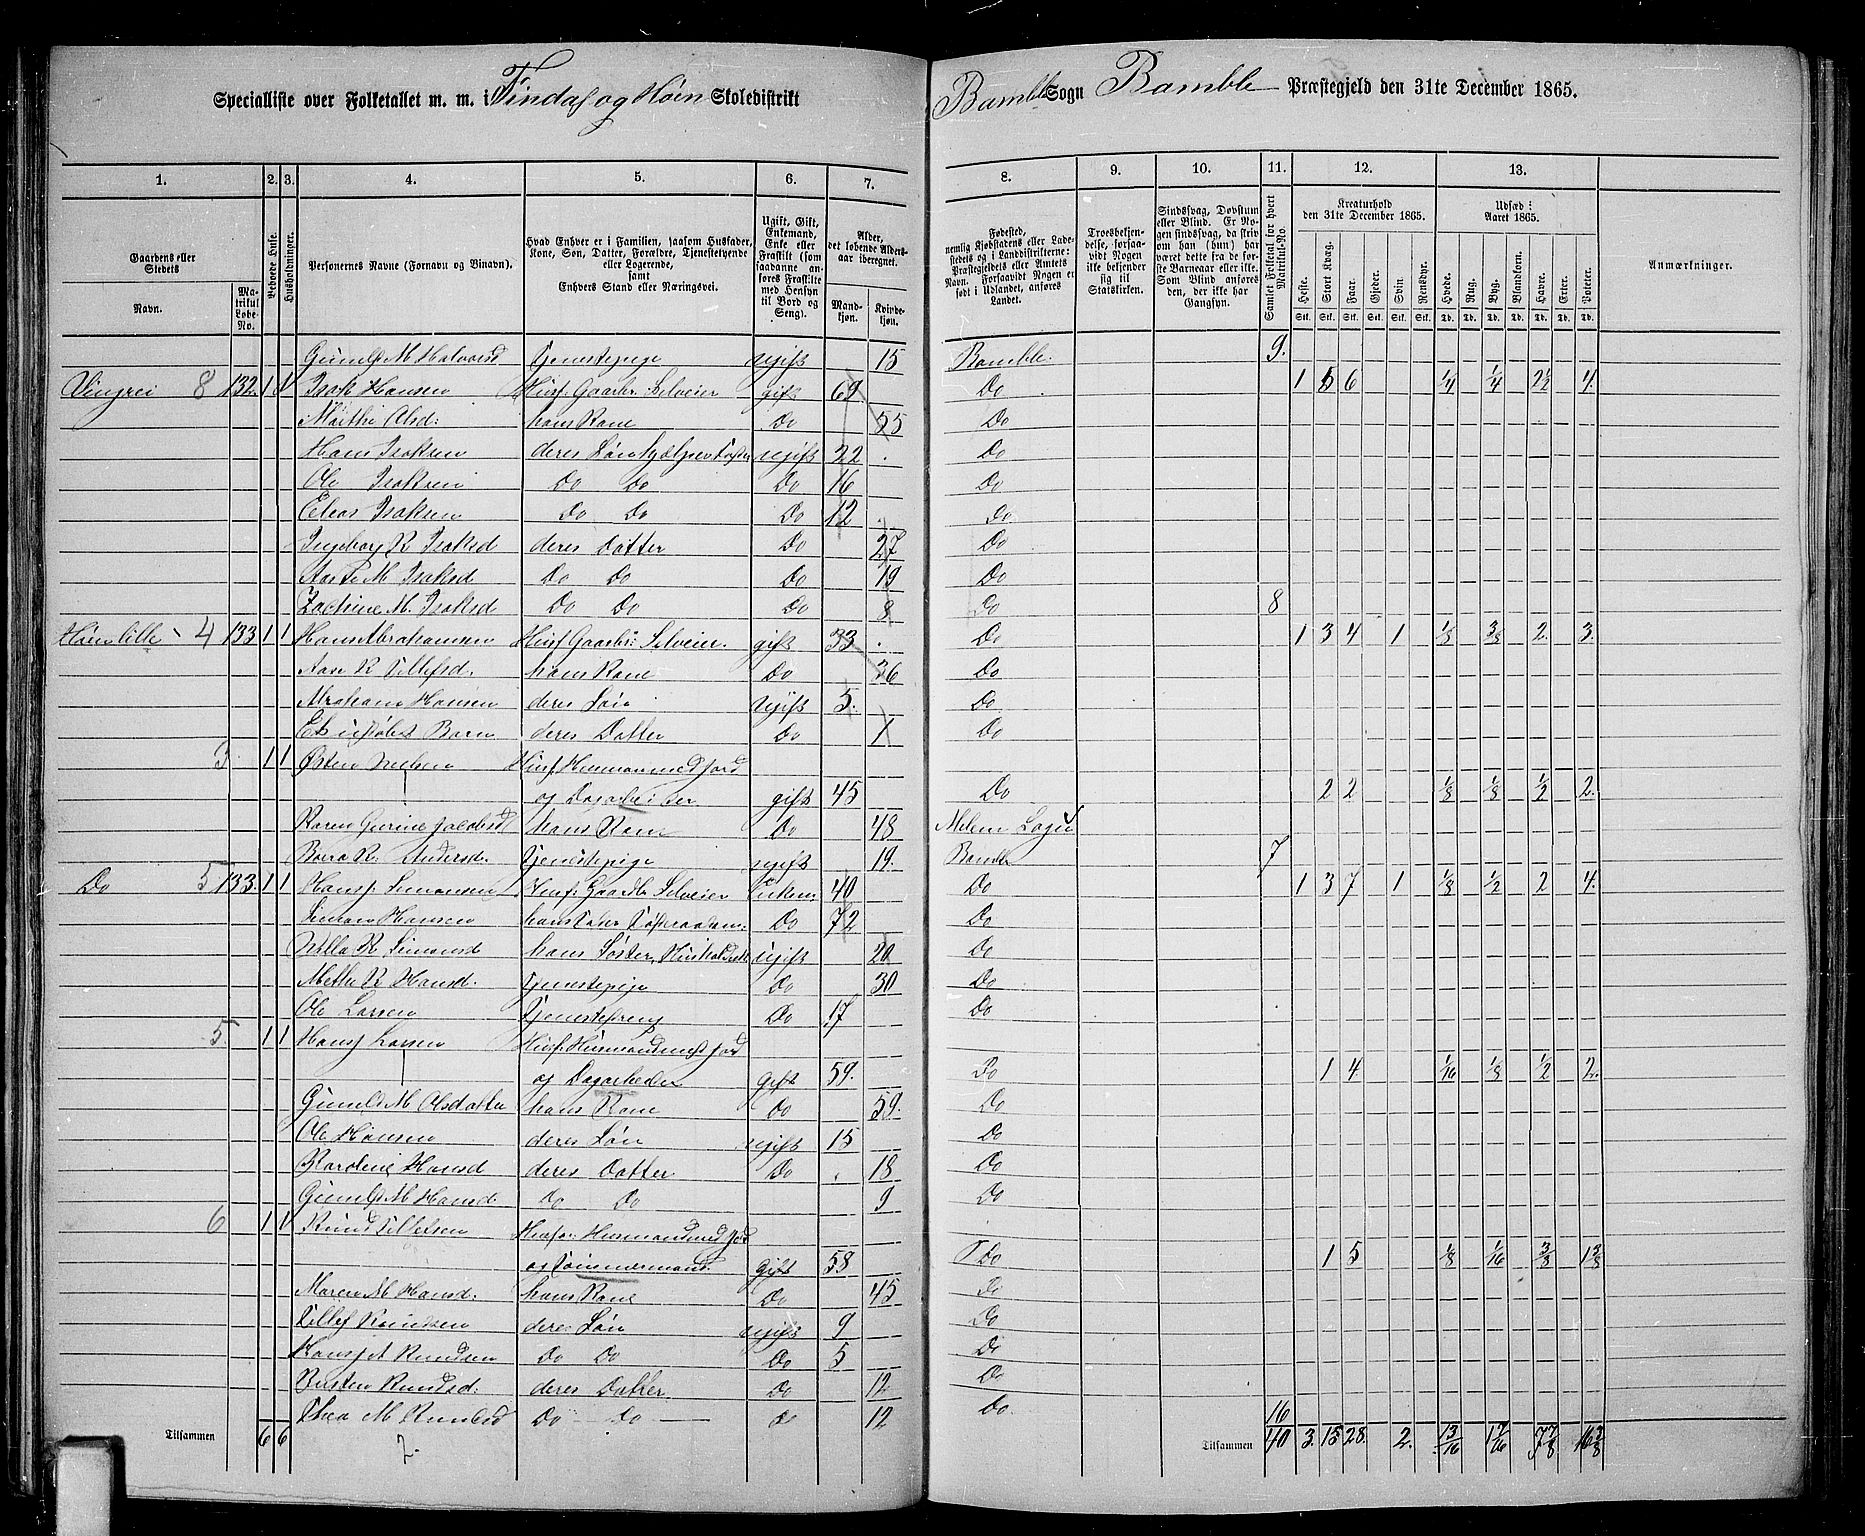 Specialliste over Folketallet m. m. i Findal og Høen Skoledistrikt
Bamble Sogn Bamble Præstegjeld den 31te December 1865.
1. 2. 3. 4. 5. 6. 7. 8. 9. 10. 11. 12. 13.
Gaardens eller Stedets
Navn.
Matrikul Løbe-No.
Beboede Huse.
Husholdninger.
Personernes Navne (Fornavn og Binavn).
Hvad Enhver er i Familien, saasom Husfader, Kone, Søn, Datter, Forældre, Tjenestetyende eller Logerende, samt Enhvers Stand eller Næringsvei.
Ugift, Gift, Enkemand, Enke eller Fraskilt (som saadanne anføres Fraskilte med Hensyn til Bord og Seng).
Alder, det løbende Aldersaar iberegnet.
Mandkjøn.
Kvindekjøn.
Fødested, nemlig Kjøbstadens eller Ladestedets og i Landdistrikterne: Præstegjeldets eller Amtets Navn. Forsaavidt Nogen er født i Udlandet, anføres Landet.
Troesbekjendelse, forsaavidt Nogen ikke bekjender sig til Statskirken.
Sindssvag, Døvstum eller Blind. Er Nogen sindssvag, da skriv om han (hun) har været dette fra de første Barneaar eller ikke. Som Blind anføres den, der ikke har Gangsyn.
Samlet Folketal for hvert Matrikul-No.
Kreaturhold den 31te December 1865.
Heste. Stort Kvæg. Faar. Gjeder. Sviin. Rensdyr.
Udsæd i Aaret 1865.
Hvede. Rug. Byg. Blandkorn. Havre. Erter. Poteter.
Anmærkninger.
Gunild M Halvorsd Tjenestepige ugift 15 Bamble. 9.
8 132. 1 1 Isak Hansen Husf. Gaardbr. Selveier gift 69. Do 1 5 6 1/4 1/4 2 1/2 4.
Olsd: hans Kone Do 55 Do
Hans Isaksen deres Søn ugift 22 Do
Ole Isaksen Do Do Do 16 Do
Elias Isaksen Do Do Do 12 Do
Ingeborg K Isaksd deres Datter Do 27 Do
M Isaksd Do Do Do 19 Do
M. Isaksd Do Do Do 8 Do 8
Høen lille 4 133 1 1 Hans Abrahamsen Husf Gaardbr: Selveier. gift 33 Do 1 3 4 1 1/8 3/8 2. 3.
Aase K Tellefsd. hans Kone Do 36 Do
Abraham Hansen deres Søn ugift 5. Do
Et udøbt Barn deres Datter Do 1 Do
3. 1 1 Østen Nielsen Husf Husmand med Jord
og Dagarbeider gift 45 Do 2 2 1/8 1/8 1/2 2.
Karen Gurine Jacobsd hans Kone Do 48
K. Andersd. Tjenestepige ugift 19. Bamble 7
Do 5 133. 1 1 Hans Simonsen Husf: Gaardbr Selveier Enkem. 40 Do 1 3 7 1 1/8 1/2 2 4.
Simon Hansen hans Fader Do 72 Do
K Simonsd hans Søster, ugift 20 Do
Mette K Hansd. Tjenestepige Do 30 Do
Ole Larsen Tjenestedreng Do 17 Do
5. 1 1 Hans Larsen Husf: Husmand med Jord
og Dagarbeider gift 59. Do 1 4 1/16 1/8 1/2 2.
Gunild M Olsdatter hans Kone Do 59. Do
Ole Hansen deres Søn ugift 15 Do
Karoline Hansd deres Datter Do 18 Do
Gunild M Hansd Do Do 9 Do
6 1 1 Knud Tellefsen Husf: Husmand med Jord
og Tømmermand gift 58 Do 1 5 1/8 1/16 3/8 1 3/8
Maren M Hansd. hans Kone Do 45 Do
Tellef Knudsen deres Søn ugift 9 Do
Hans A Knudsen Do Do Do 5 Do
Kirsten Knudsd: deres Datter Do 12 Do
Thea M Knudsd Do Do 12 Do. 16
Tilsammen 6 6 Tilsammen 40 3. 15 28. 2. 13/16 1 7/16 7 7/8 16 3/8